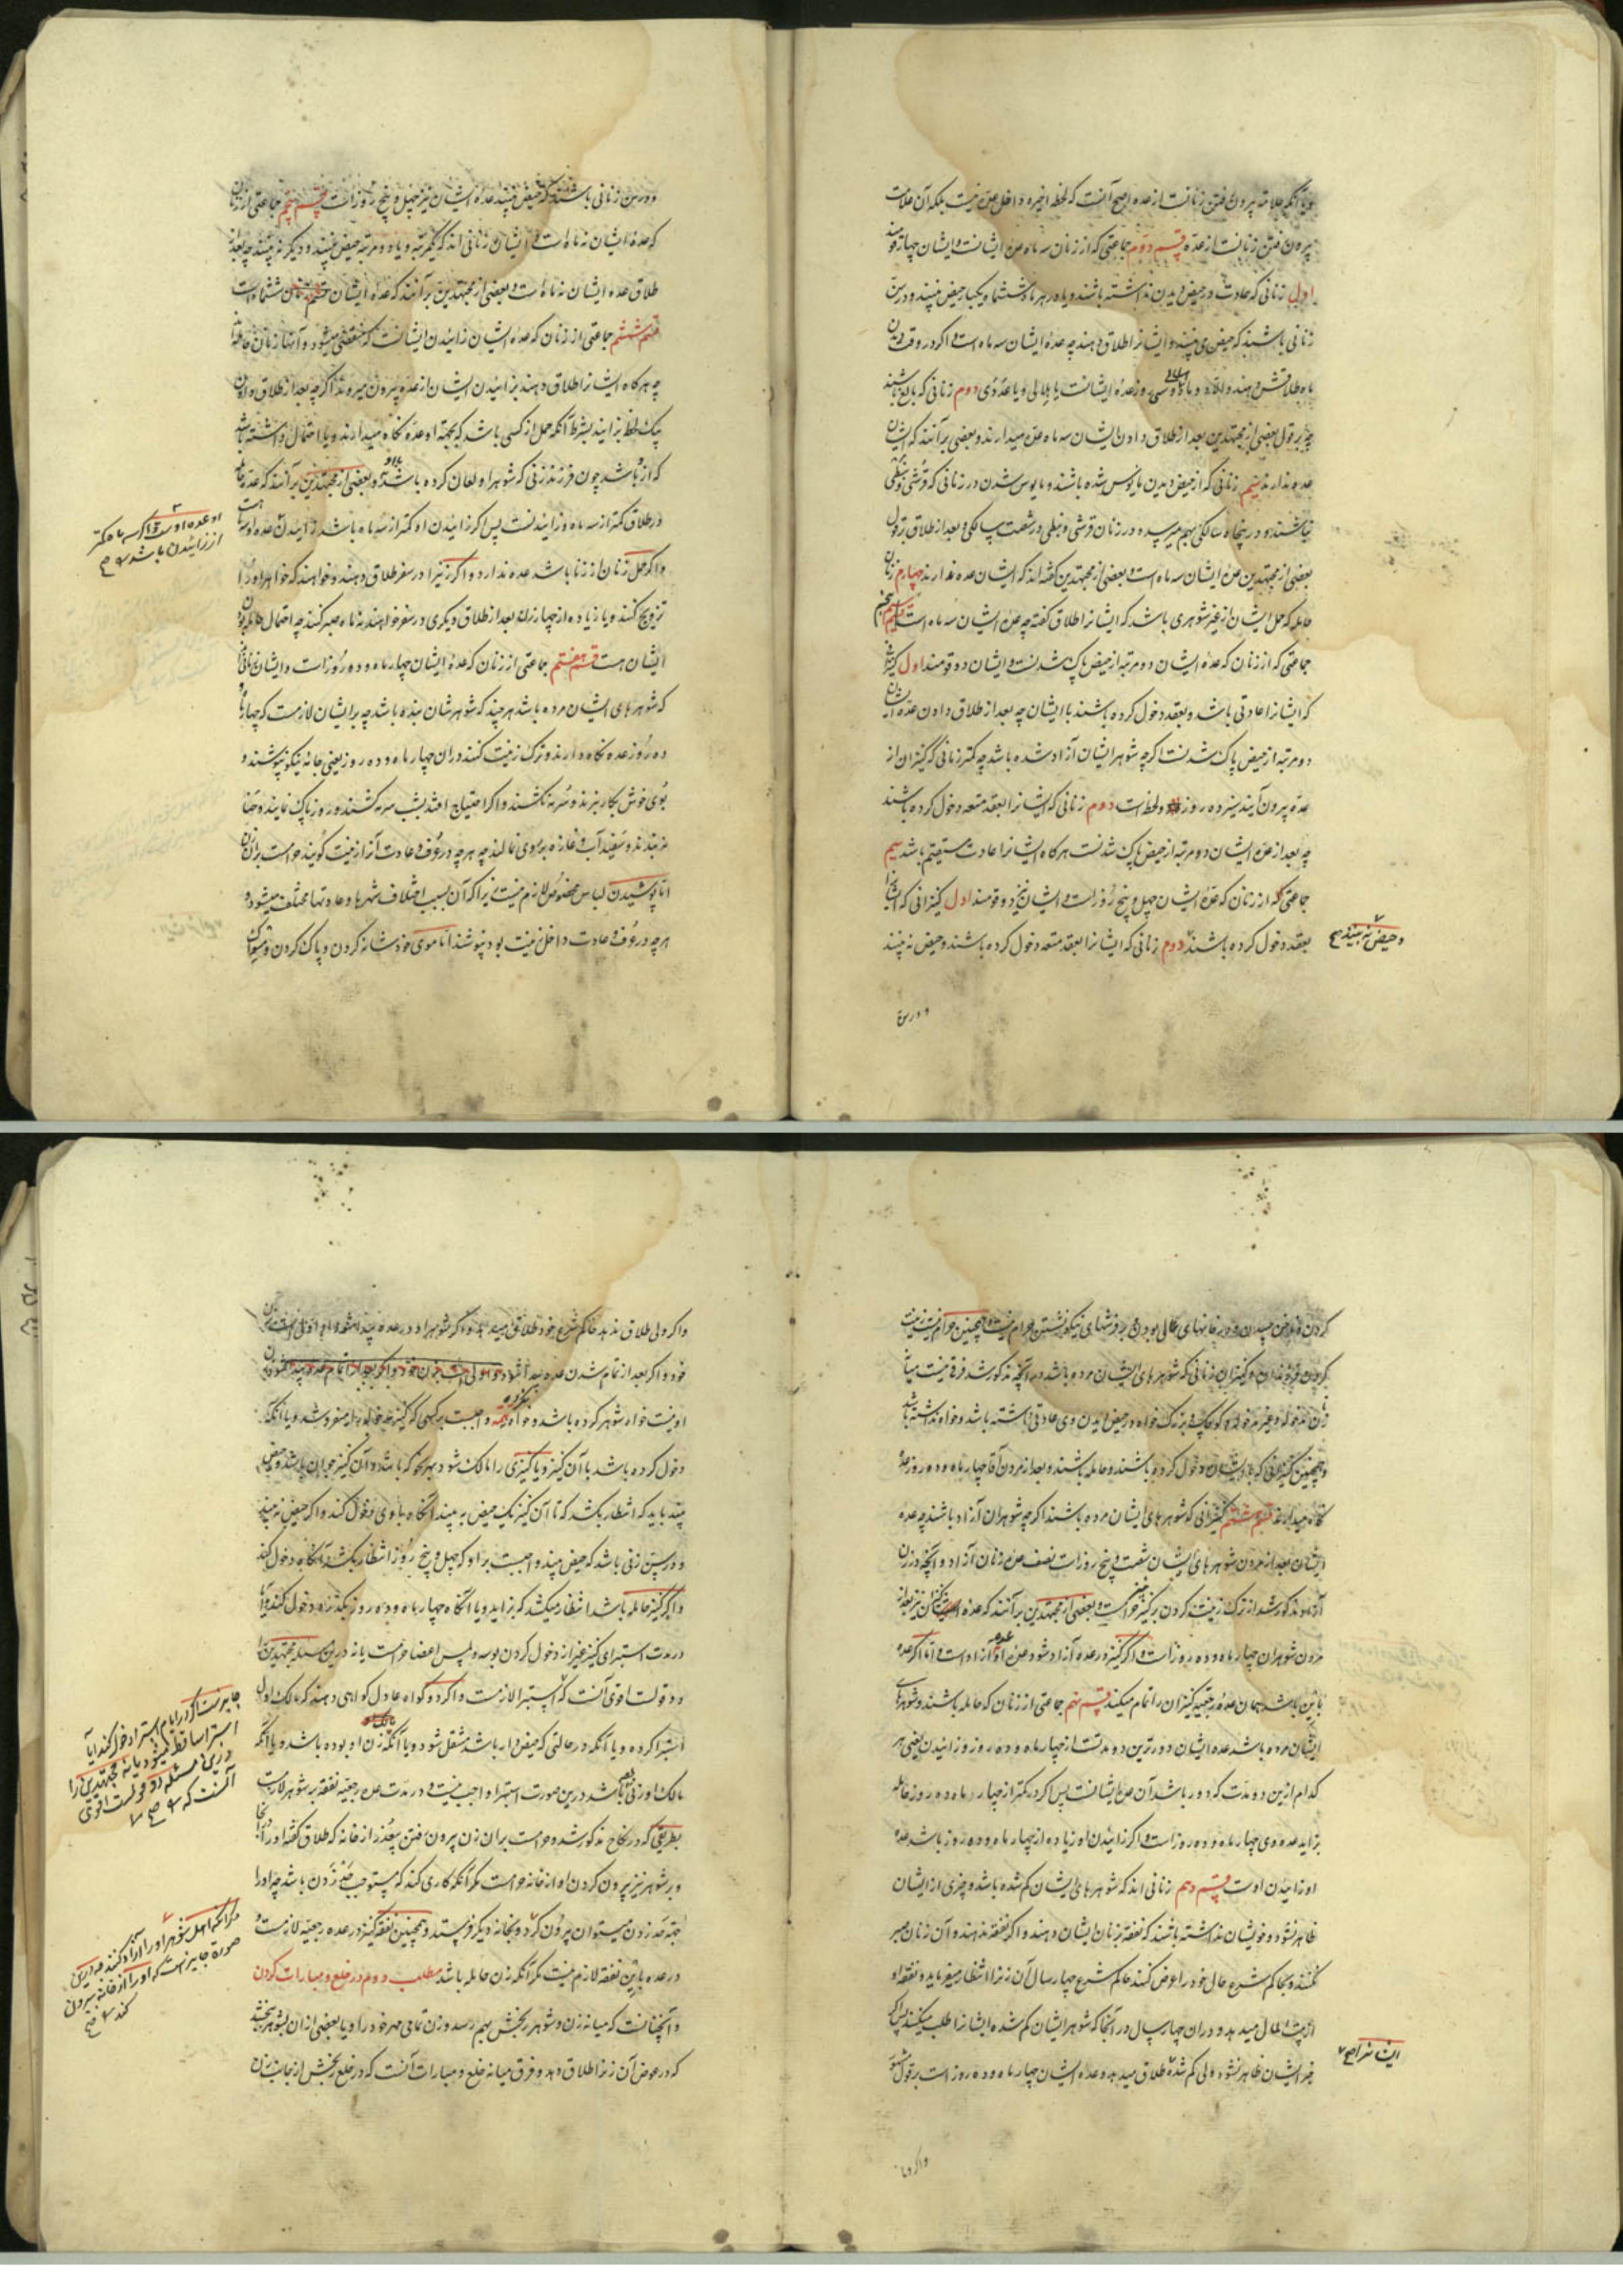 بیرون رفتن زنانست از عده قسم دوم جماعتی که از زنان سه ماه عدهٔ ایشانست و ایشان چهار قومند
اول زنانی که عادت در حیض دیدن نداشته باشند و یا در هر شش ماه یکبار حیض بینند و در سن
زنانی باشند که حیض می بینند و ایشانرا طلاق دهند چه عدهٔ ایشان سه ماه است و اگر در وقت دیدن
دوم زنانی که بالغ نباشند
چه بر قول بعضی از مجتهدین بعد از طلاق دادن ایشان سه ماه عده میدارند و بعضی بر آنند که ایشان
عده ندارند سیم زنانی که از حیض دیدن مأیوس شده باشند و مأیوس شدن در زنانی که قرشی و نبطی
نباشند در پنجاه سالگی بهم میرسد و در زنان قرشی و نبطی در شصت سالگی و بعد از طلاق بر قول
بعضی از مجتهدین عدهٔ ایشان سه ماه است و بعضی از مجتهدین گفته اند که ایشان عده ندارند چهارم زنان
حامله که حمل ایشان از غیر شوهری باشد که ایشانرا طلاق گفته چه عدهٔ ایشان سه ماه است
جماعتی که از زنان که عدهٔ ایشان دو مرتبه از حیض پاک شدنست و ایشان دو قومند اول
که ایشانرا عادتی باشد و بعقد دخول کرده باشند با ایشان چه بعد از طلاق دادن عدهٔ ایشان
دو مرتبه از حیض پاک شدنست اگرچه شوهر ایشان آزاد شده باشد چه کمتر زمانی که کنیزان از
عده بیرون آیند سیزده روز و دو لحظه است دوم زنانی که ایشانرا بعقد متعه دخول کرده باشند
چه بعد از عده ایشان دو مرتبه از حیض پاک شدنست هرگاه ایشانرا عادت مستقیم باشد
جماعتی که از زنان که عدهٔ ایشان چهل و پنج روز است و ایشان نیز دو قومند اول کنیزانی که ایشانرا
بعقد دخول کرده باشند دوم زنانی که ایشانرا بعقد متعه دخول کرده باشند و حیض نه بینند
و حیض نه بینند صح
و در سن
و در سن زنانی باشند که حیض بینند عدهٔ ایشان نیز چهل و پنج روز است قسم پنجم جماعتی از زنان
که عدهٔ ایشان نه ماه است و ایشان زنانی اند که یکمرتبه و یا دو مرتبه حیض بینند و دیگر نه بینند چه بعد از
طلاق عده ایشان نه ماه است و بعضی از مجتهدین بر آنند که عدهٔ ایشان شش ماه است
قسم ششم جماعتی از زنان که عدهٔ ایشان زائیدن ایشانست که منقضی میشود و آنها زنان حامله اند
چه هرگاه ایشانرا طلاق دهند بزائیدن ایشان از عده بیرون میروند اگرچه بعد از طلاق دادن
بیک لحظه بزایند بشرط آنکه حمل از کسی باشد که بجهة او عده نگاه میدارند و یا احتمال داشته باشد
که از او باشد چون فرزند زنی که شوهر او لعان کرده باشد و بعضی از مجتهدین بر آنند که عده حامله
در طلاق کمتر از سه ماه و زائیدنست پس اگر زائیدن او کمتر از سه ماه باشد زائیدن عده اوست
و اگر حمل زنان از زنا باشد عده ندارد و اگر زنیرا در سفر طلاق دهند و خواهند که خواهر او را
تزویج کنند و یا زیاده از چهار زن بعد از طلاق دیگری در سفر خواهند نه ماه صبر کنند چه احتمال حامله بودن
ایشان هست قسم هفتم جماعتی از زنان که عدهٔ ایشان چهار ماه و ده روز است و ایشان زنانی اند
که شوهرهای ایشان مرده باشد هر چند که شوهرشان بنده باشد چه بر ایشان لازمست که چهار ماه و
ده روز عده نگاه دارند و ترک زینت کنند در آن چهار ماه و ده روز یعنی جامه نیکو نپوشند و
بوی خوش بکار نبرند و سرمه نکشند و اگر احتیاج افتد بشب سرمه کشند و روز پاک نمایند و حنا
نه بندند و سفید آب و غازه بر روی نمالند چه هر چه در عرف و عادت آنرا زینت گویند حرامست بر ایشان
اما پوشیدن لباس مخصوص لازم نیست زیرا که آن بسبب اختلاف شهرها و عادتها مختلف میشود
هر چه در عرف و عادت داخل زینت بود نپوشند اما موی خود شانه کردن و پاک کردن و مسواک
کردن و ناخن چیدن و در خانهای عالی بودن و بر فرشهای نیکو نشستن حرام نیست و همچنین حرام نیست زینت
کردن فرزندان و کنیزان زنانی که شوهرهای ایشان مرده باشد و در آنچه مذکور شد فرقی نیست میان
و همچنین کنیزانی که با ایشان دخول کرده باشند و حامله باشند و بعد از مردن آقا چهار ماه و ده روز عده
نگاه میدارند قسم هشتم کنیزانی که شوهرهای ایشان مرده باشند اگرچه شوهران آزاد باشند چه عده
ایشان بعد از مردن شوهرهای ایشان شصت و پنج روز است نصف عدهٔ زنان آزاد و آنچه در زن
آزاد مذکور شد از ترک زینت کردن بر کنیز نیست و بعضی از مجتهدین بر آنند که عده
مردن شوهران چهار ماه و ده روز است و اگر کنیز در عده آزاد شود عدهٔ او عدهٔ آزاد است و اما اگر عده
باین باشد همان عدهٔ رجعیه کنیزان را تمام میکنند قسم نهم جماعتی از زنان که حامله باشند و شوهرهای
ایشان مرده باشد عده ایشان دورترین دو مدتست از چهار ماه و ده روز و زائیدن یعنی هر
کدام ازین دو مدت که دور باشد آن عدهٔ ایشانست پس اگر در کمتر از چهار ماه و ده روز حامله
بزاید عده وی چهار ماه و ده روز است و اگر زائیدن او زیاده از چهار ماه و ده روز باشد عده
او زائیدن اوست قسم دهم زنانی اند که شوهرهای ایشان گم شده باشد و خبری از ایشان
ظاهر نشود و خویشان نداشته باشند که نفقه بزنان ایشان دهند و اگر نفقه ندهند و آن زنان صبر
نکنند و بحاکم شرع حال خود را عرض کنند حاکم شرع چهار سال آن زنرا انتظار میفرماید و نفقه او
از بیت المال میدهد و در آن چهار سال در آنجا که شوهر ایشان گم شده ایشانرا طلب میکنند پس اگر
خبر ایشان ظاهر نشود ولی گم شده طلاق میدهد و عده ایشان چهار ماه و ده روز است بر قول
و اگر ولی طلاق ندهد حاکم شرع خود طلاق میدهد و اگر شوهر او در عده پیدا شود
اوئیست خواه شوهر کرده باشد و خواه نکرده
دخول کرده باشد با آن کنیز و یا کنیزی را مالک شود بهر نحو که باشد و آن کنیز جوان باشد و حیض
بیند باید که انتظار بکشد که تا آن کنیز یک حیض به بیند آنگاه با وی دخول کند و اگر حیض نه بیند
و در سن زنی باشد که حیض بیند واجبست بر او که چهل و پنج روز انتظار بکشد آنگاه دخول کند
و اگر کنیز حامله باشد انتظار میکشد که بزاید و یا آنگاه چهار ماه و ده روز بگذرد دخول کند و آیا
در مدت استبرای کنیز غیر از دخول کردن بوسه و لمس اعضا حرامست یا نه درین مسئله مجتهدین را
دو قولست اقوی آنست که استبرا لازمست و اگر دو گواه عادل گواهی دهند که مالک اول
استبرا کرده و یا آنکه در حالتی که حیض دار باشد منتقل شود و یا آنکه زن او بوده باشد و یا آنکه
مالک او زنی باشد درین صورت استبرا واجب نیست و در مدت عده رجعیه نفقه بر شوهر لازمست
بطریقی که در نکاح مذکور شد و حرامست بر آن زن بیرون رفتن بی عذر از خانه که طلاق گفته او را آنجا
و بر شوهر نیز بیرون کردن او از خانه حرامست مگر آنکه کاری کند که مستوجب حد زدن باشد چه او را
بجهة حد زدن میتوان بیرون کرد و بخانه دیگر فرستند و همچنین نفقه کنیز در عده رجعیه لازمست و
در عده باین نفقه لازم نیست مگر آنکه زن حامله باشد مطلب دوم در خلع و مبارات کردن
و آنچنانست که میانه زن و شوهر رنجش بهم رسد و زن تمامی مهر خود را و یا بعضی از آن بشوهر بخشد
که در عوض آن زنرا طلاق دهد و فرق میانه خلع و مبارات آنست که در خلع رنجش از جانب زن